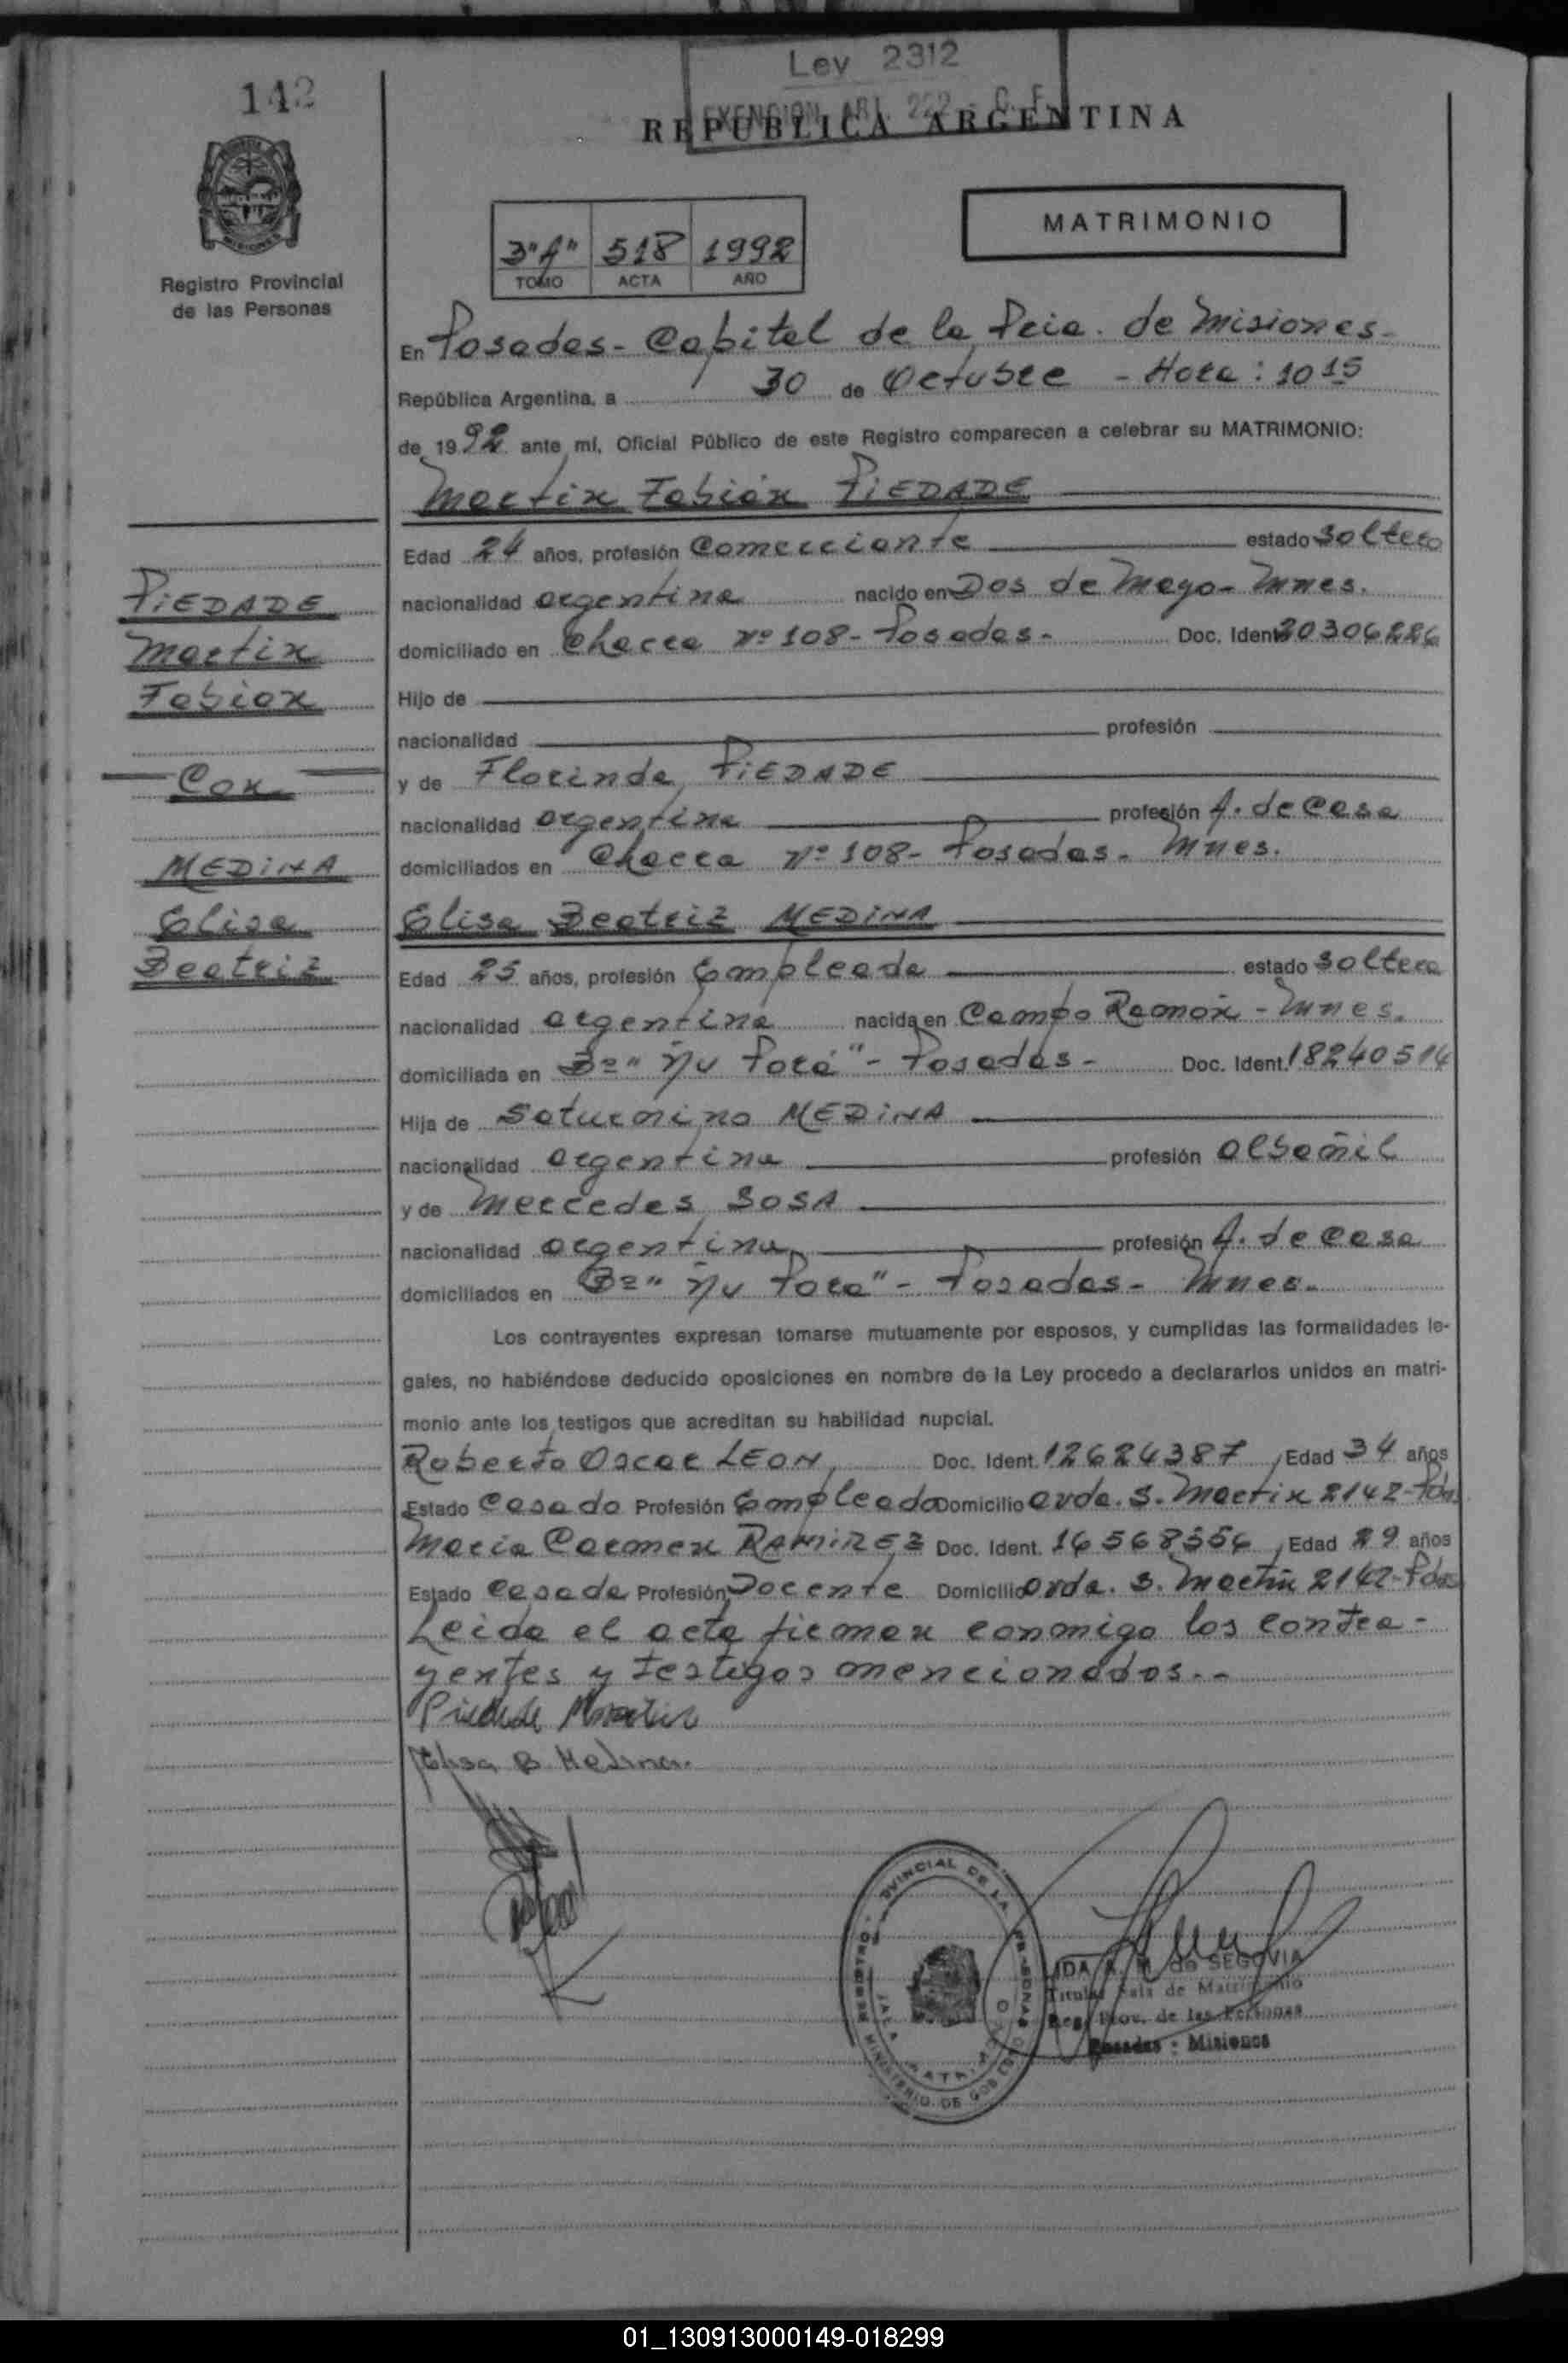 Ley 2312
EXENCION ART. 222 - C. F.
142
REPUBLICA ARGENTINA
MATRIMONIO
3"A" 518 1992
TOMO ACTA AÑO
MISIONES
Registro Provincial
de las Personas
En Posadas - Capital de la Pcia. de Misiones -
República Argentina, a 30 de Octubre - Hora: 10 15
de 1992 ante mí, Oficial Público de este Registro comparecen a celebrar su MATRIMONIO:
Martin Fabián PIEDADE
Edad 24 años, profesión Comerciante estado Soltero
PIEDADE
nacionalidad argentina nacido en Dos de Mayo - Mnes.
Martin
domiciliado en Chacra Nº 108 - Posadas - Doc. Ident. 20306226
Fabian
Hijo de
nacionalidad profesión
Con
y de Florinda PIEDADE
nacionalidad argentina profesión A. de Casa
MEDINA
domiciliados en Chacra Nº 108 - Posadas - Mnes.
Elisa
Elisa Beatriz MEDINA
Beatriz
Edad 25 años, profesión Empleada estado Soltera
nacionalidad argentina nacida en Campo Ramón - Mnes.
domiciliada en Bº "Ñu Porá" - Posadas - Doc. Ident. 18240514
Hija de Saturnino MEDINA
nacionalidad argentina profesión albañil
y de Mercedes SOSA
nacionalidad argentina profesión A. de Casa
domiciliados en Bº "Ñu Pora" - Posadas - Mnes.
Los contrayentes expresan tomarse mutuamente por esposos, y cumplidas las formalidades le-
gales, no habiéndose deducido oposiciones en nombre de la Ley procedo a declararlos unidos en matri-
monio ante los testigos que acreditan su habilidad nupcial.
Roberto Oscar LEON Doc. Ident. 12624387, Edad 34 años
Estado Casado Profesión Empleado Domicilio avda. S. Martin 2142 - Pdas
Maria Carmen RAMIREZ Doc. Ident. 16568556, Edad 29 años
Estado Casada Profesión Docente Domicilio avda. S. Martin 2142 - Pdas
Leida el acta firman conmigo los contra-
yentes y testigos mencionados.-
Piedade Martin
Elisa B. Medina.
REGISTRO PROVINCIAL DE LAS PERSONAS
MINISTERIO DE GOBIERNO
SALA MATRIMONIO
IDA A. M. de SEGOVIA
Titular Sala de Matrimonio
Reg. Prov. de las Personas
Posadas - Misiones
01_130913000149-018299